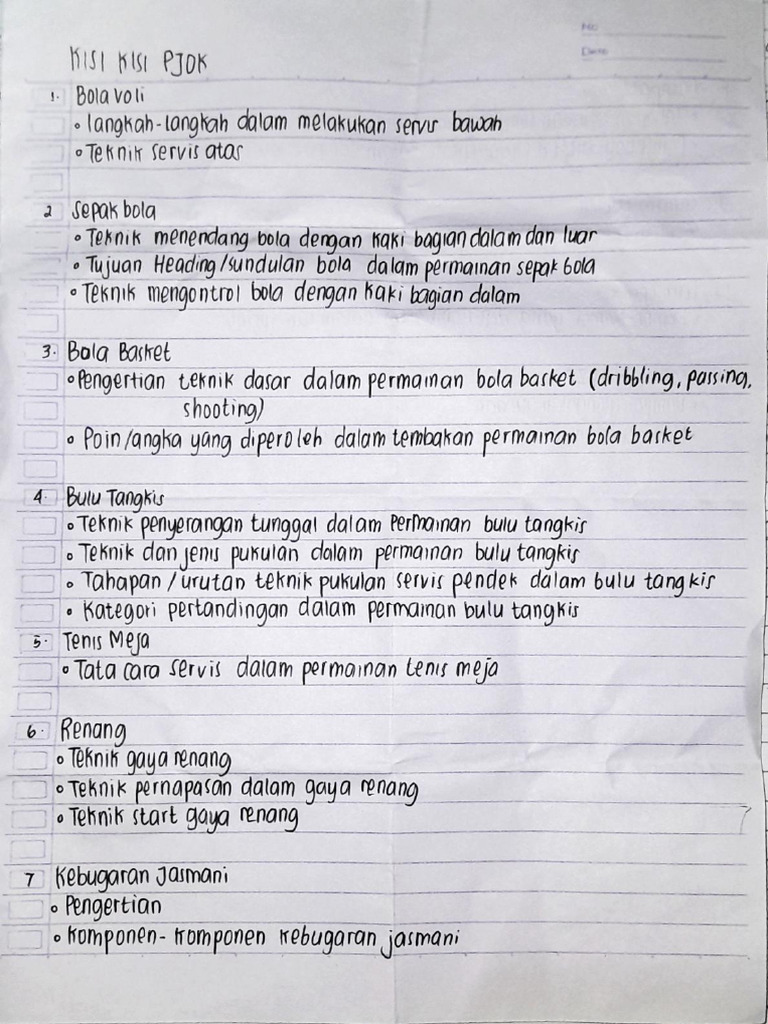 No:
Date:
KISI KISI PJOK
1. Bola voli
• langkah-langkah dalam melakukan servis bawah
• Teknik servis atas
2 Sepak bola
• Teknik menendang bola dengan kaki bagian dalam dan luar
• Tujuan Heading/sundulan bola dalam permainan sepak bola
• Teknik mengontrol bola dengan kaki bagian dalam
3. Bola Basket
• Pengertian teknik dasar dalam permainan bola basket (dribbling, passing,
shooting)
• Poin/angka yang diperoleh dalam tembakan permainan bola basket
4. Bulu Tangkis
• Teknik penyerangan tunggal dalam permainan bulu tangkis
• Teknik dan jenis pukulan dalam permainan bulu tangkis
• Tahapan/urutan teknik pukulan servis pendek dalam bulu tangkis
• Kategori pertandingan dalam permainan bulu tangkis
5. Tenis Meja
• Tata cara servis dalam permainan tenis meja
6. Renang
• Teknik gaya renang
• Teknik pernapasan dalam gaya renang
• Teknik start gaya renang
7 Kebugaran Jasmani
• Pengertian
• Komponen-komponen kebugaran jasmani